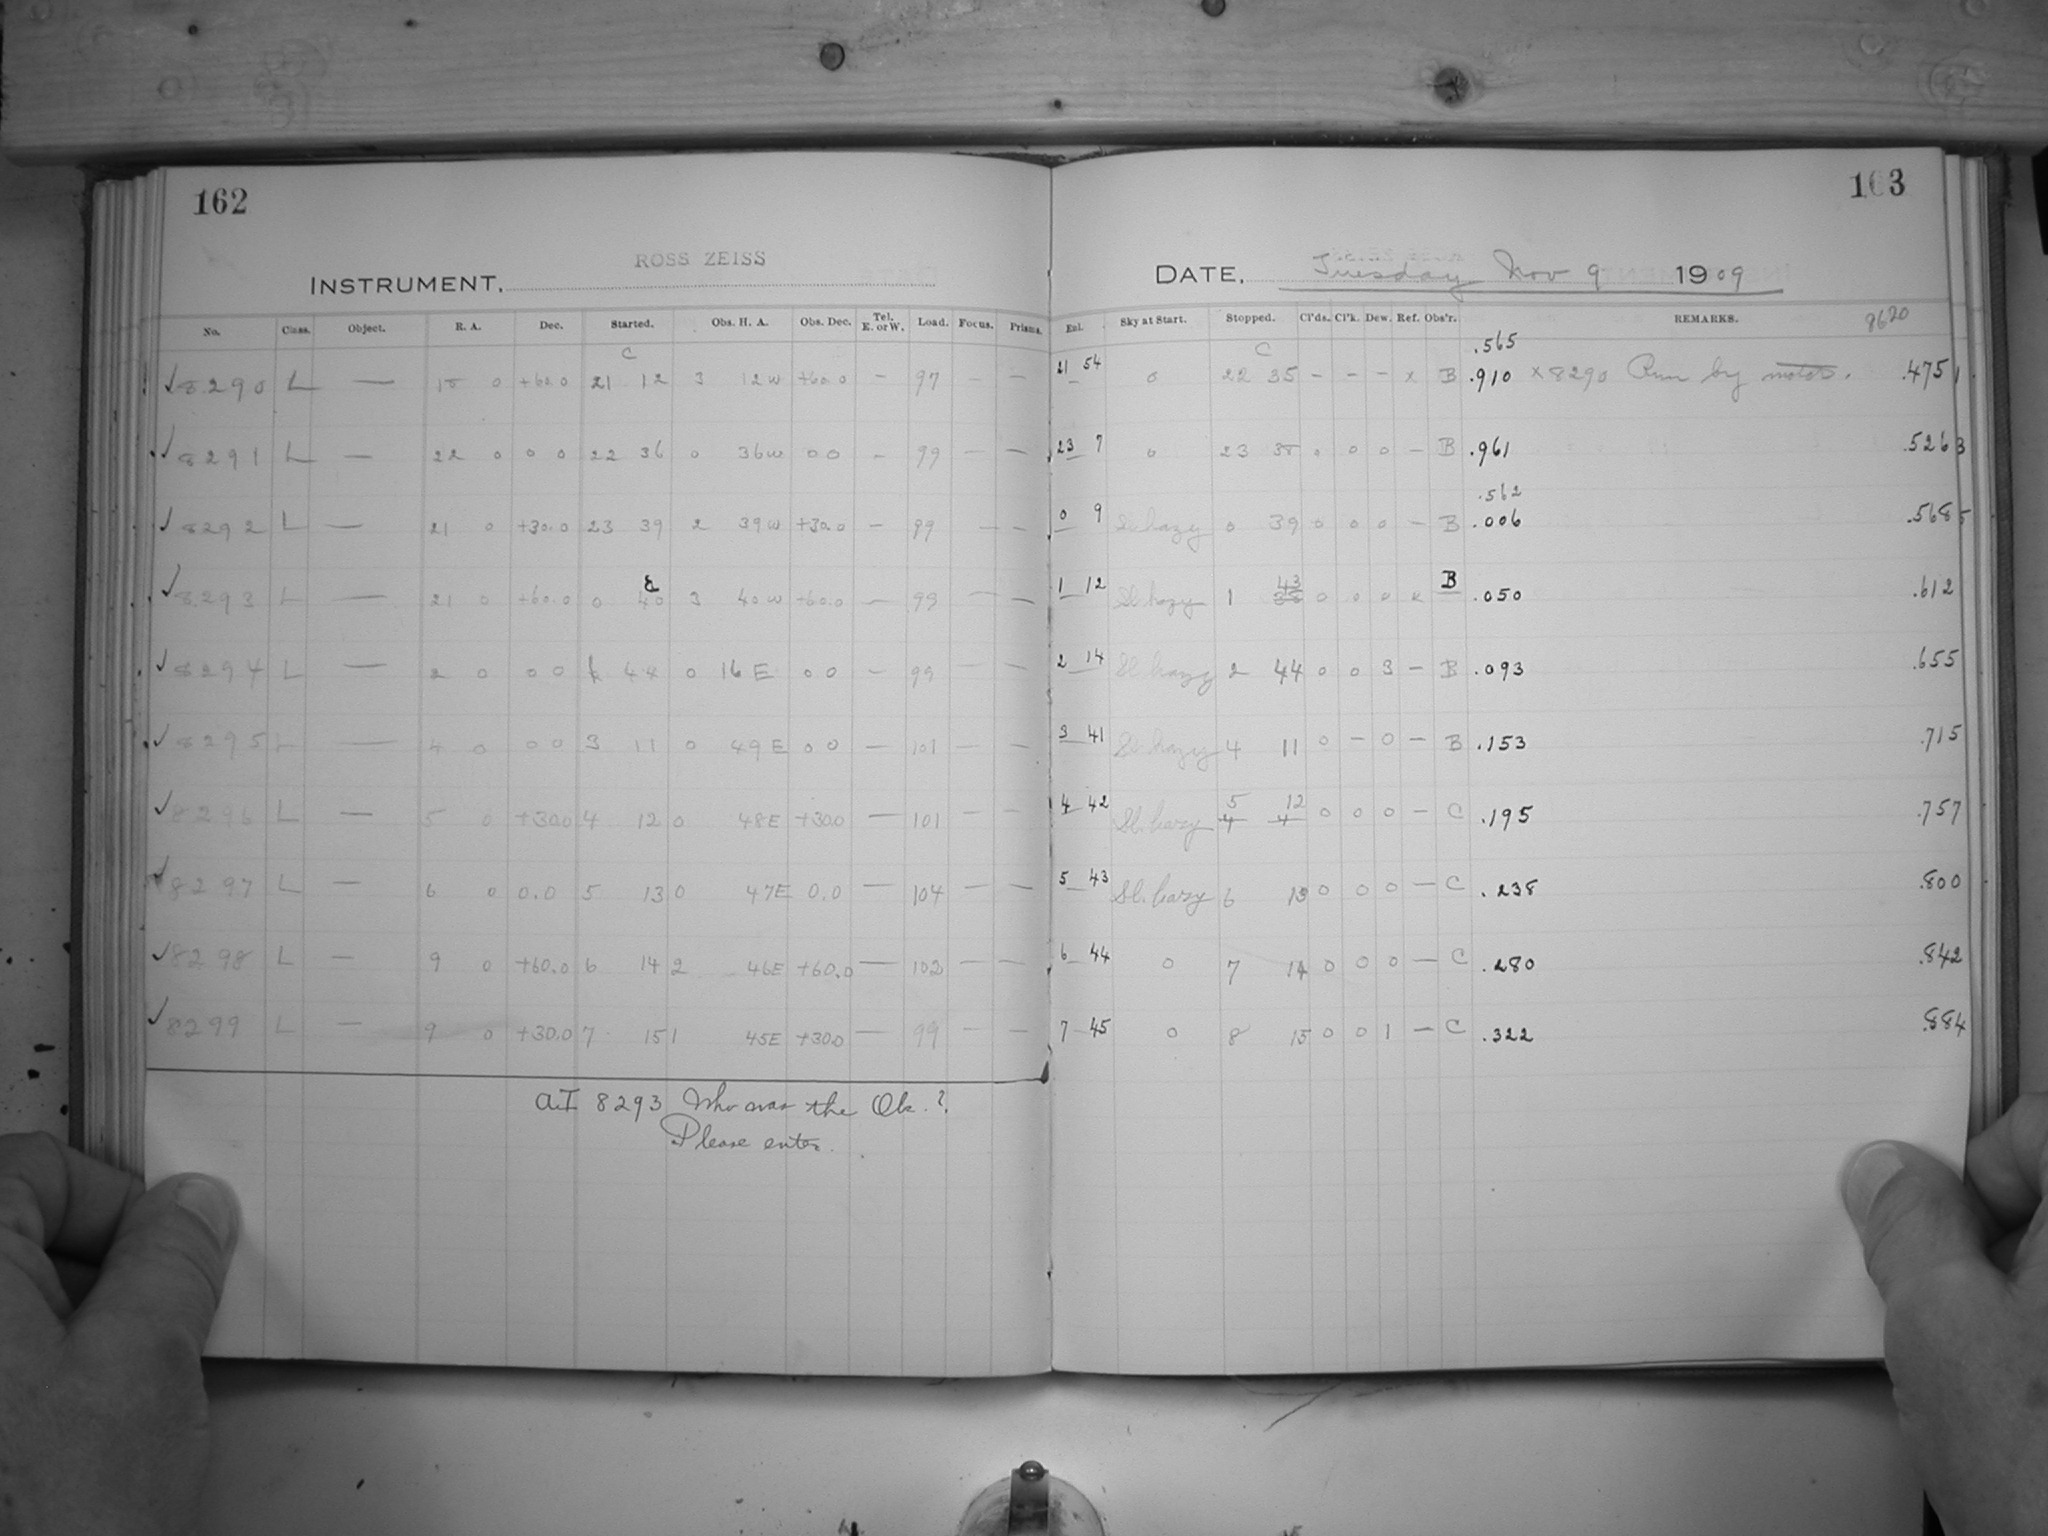 162
ROSS ZEISS
INSTRUMENT.
No. Class. Object. R. A. Dec. Started. Obs. H. A. Obs. Dec. Tel. E. or W. Load. Focus. Prisms.
C
8290 L — 18 0 +60.0 21 12 3 12W +60.0 — 97 — —
8291 L — 22 0 0 0 22 36 0 36W 0 0 — 99 — —
8292 L — 21 0 +30.0 23 39 2 39W +30.0 — 99 — —
8293 L — 21 0 +60.0 0 40 3 40W +60.0 — 99 — —
8294 L — 2 0 0 0 1 44 0 16 E 0 0 — 99 — —
8295 L — 4 0 0 0 3 11 0 49 E 0 0 — 101 — —
8296 L — 5 0 +30.0 4 12 0 48E +30.0 — 101 — —
8297 L — 6 0 0.0 5 13 0 47E 0.0 — 104 — —
8298 L — 9 0 +60.0 6 14 2 46E +60.0 — 102 — —
8299 L — 9 0 +30.0 7 15 1 45E +30.0 — 99 — —
At 8293 Who was the Ob.?
Please enter.
163
DATE, Tuesday Nov 9 1909
Exl. Sky at Start. Stopped. Cl'ds. Cl'k. Dew. Ref. Obs'r. REMARKS. 8620
C .565
21 54 0 22 35 — — — x B .910 x 8290 Run by motor. .4751
23 7 0 23 38 0 0 0 — B .961 .5263
.562
0 9 Sl. hazy 0 39 0 0 0 — B .006 .5685
43
1 12 Sl. hazy 1 38 0 0 0 x B .050 .612
2 14 Sl. hazy 2 44 0 0 3 — B .093 .655
3 41 Sl. hazy 4 11 0 — 0 — B .153 .715
5 12
4 42 Sl. hazy 4 4 0 0 0 — C .195 .757
5 43 Sl. hazy 6 13 0 0 0 — C .238 .800
6 44 0 7 14 0 0 0 — C .280 .842
7 45 0 8 15 0 0 1 — C .322 .884